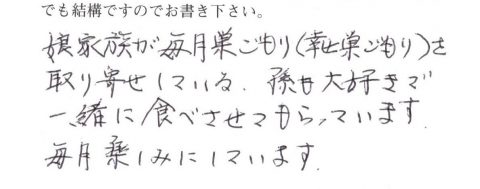 でも結構ですのでお書き下さい。
娘家族が毎月巣ごもり(幸せ巣ごもり)を
取り寄せしている。孫も大好きで
一緒に食べさせてもらっています.
毎月楽しみにしています.